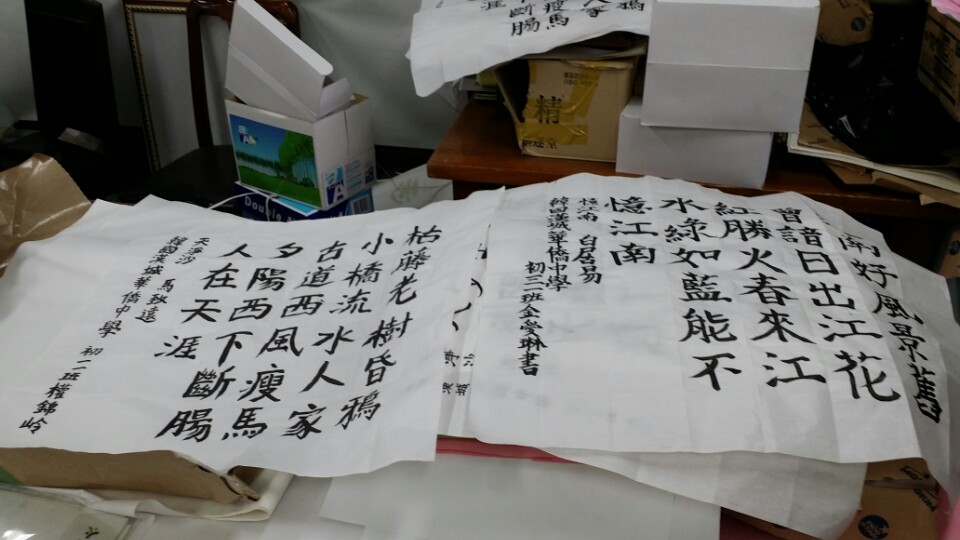 鴉
人家
瘦馬
斷腸
涯
精
Double A
南好風景舊
曾諳日出江花
紅勝火春來江
水綠如藍能不
憶江南
憶江南 白居易
韓國漢城華僑中學
枯藤老樹昏鴉
小橋流水人家
古道西風瘦馬
夕陽西下斷腸
人在天涯
天淨沙 馬致遠
韓國漢城華僑中學